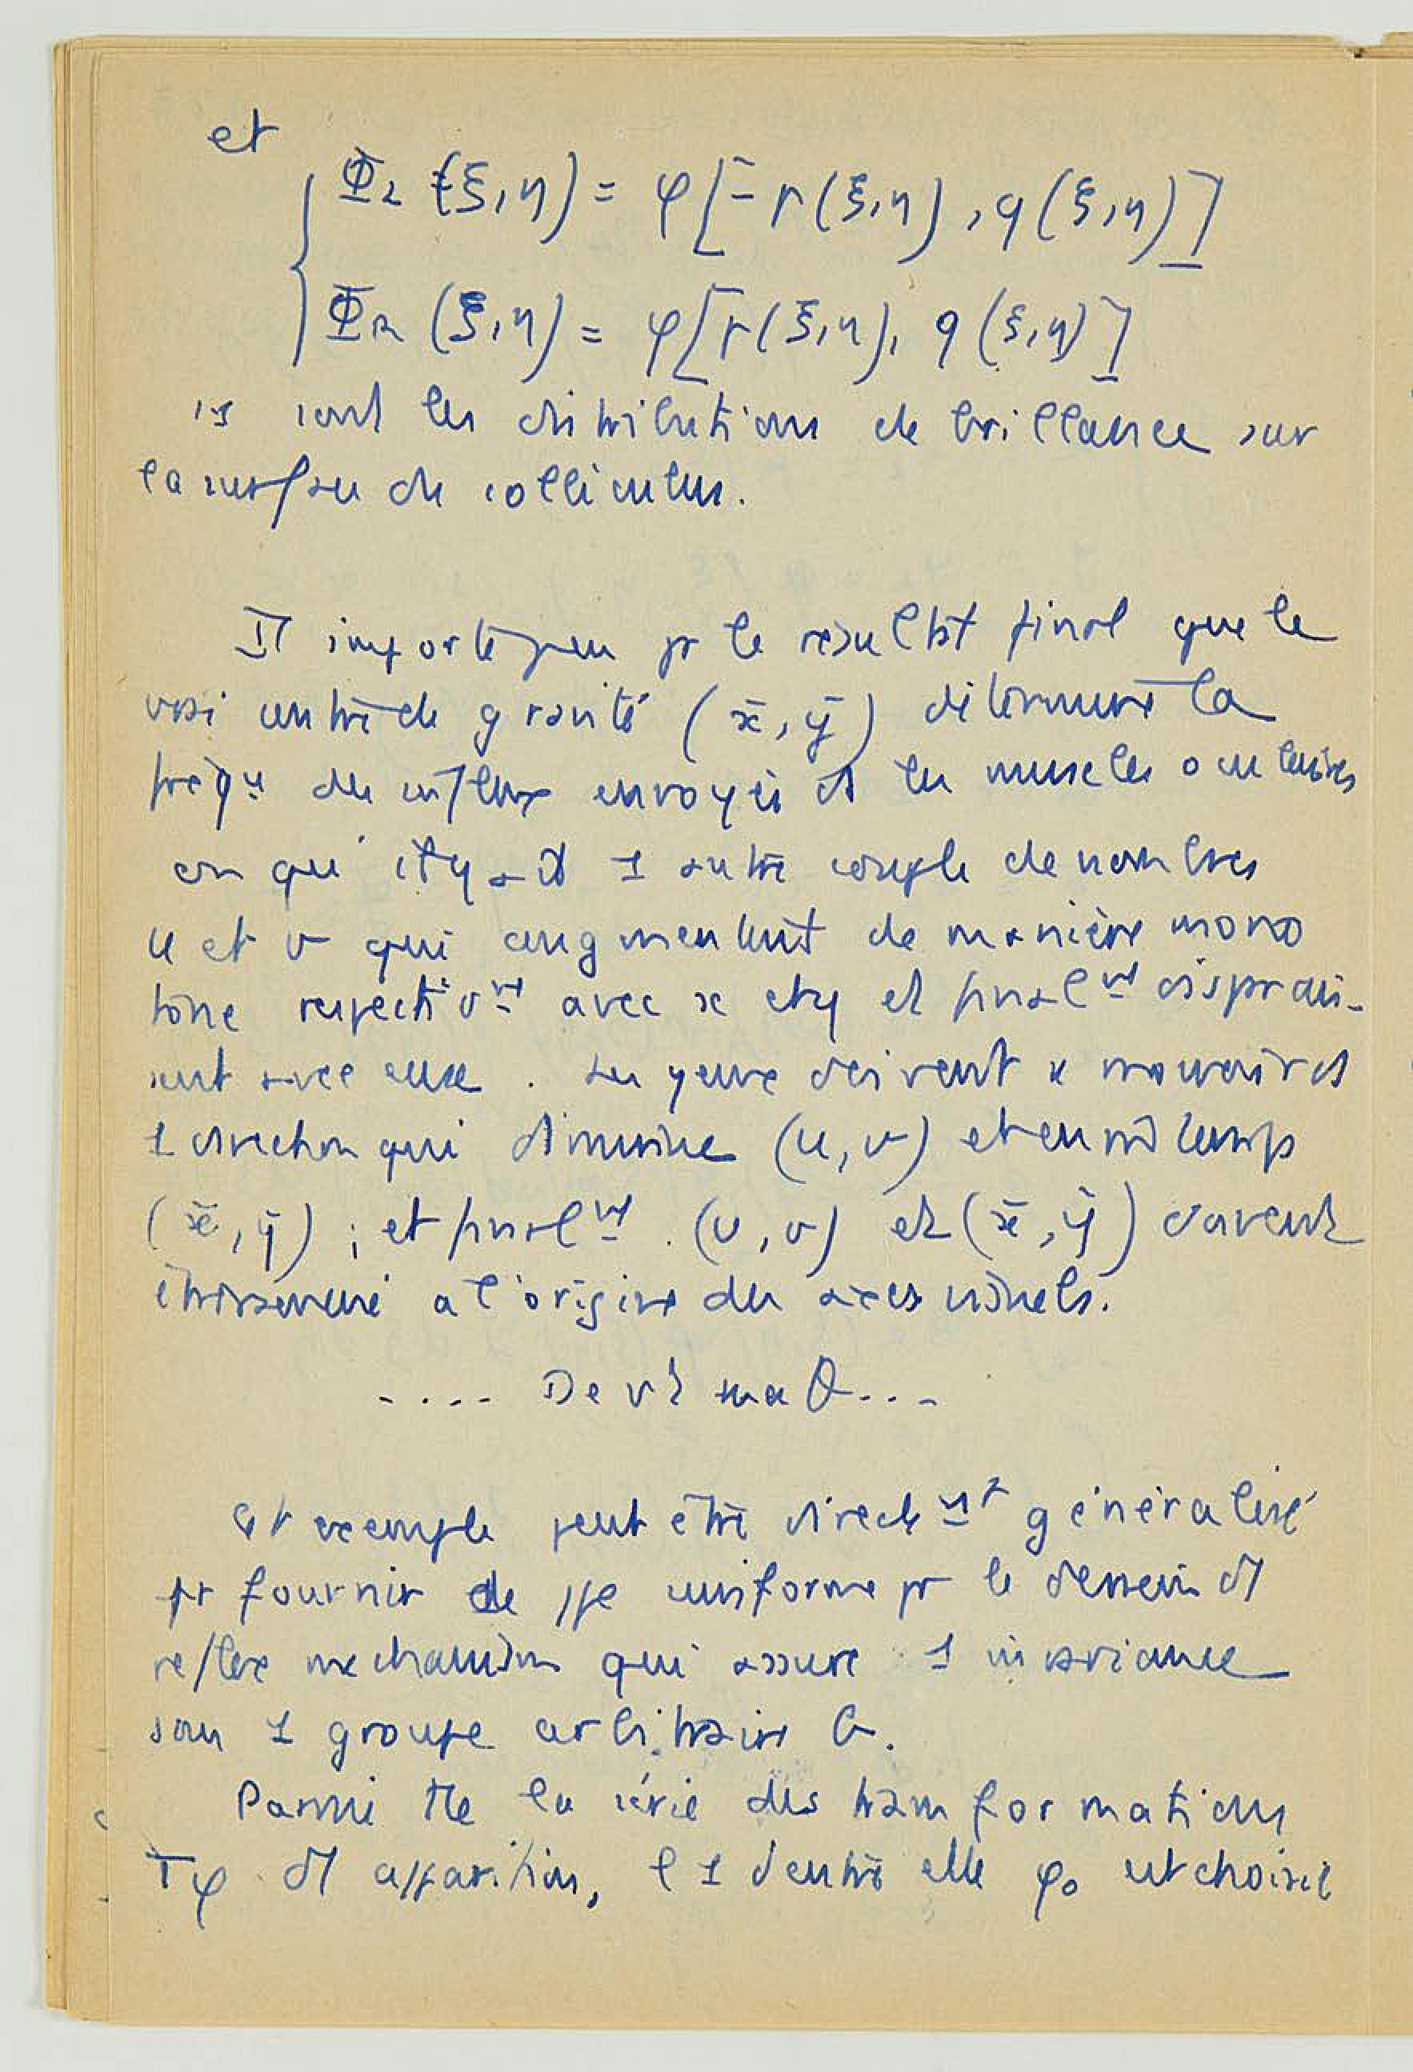 et
Φ₂ (ξ,η) = φ[- p(ξ,η), q(ξ,η)]
ΦR (ξ,η) = φ[p(ξ,η), q(ξ,η)]
sont les distributions de brillance sur
la surface du colliculus.
Il importe peu pr le résultat final que le
vrai centre de gravité (x̄, ȳ) détermine la
fréq. des influx envoyés à les muscles oculaires
ou qu'il y ait 1 autre couple de nombres
u et v qui augmentent de manière mono
tone respectivt avec x et y et finalt disparais-
sent avec eux. Les yeux doivent se mouvoir ds
1 direction qui diminue (u, v) et en m̂ temps
(x̄, ȳ) ; et finalt (u, v) et (x̄, ȳ) doivent
à l'origine des axes visuels.
.... De v? ma θ...
Cet exemple peut être directet généralisé
pr fournir de uniforme pr le dessein d1
reflex mechanism qui assure 1 invariance
sous 1 groupe arbitraire G.
Parmi tte la série des transformations
Tφ d1 apparition, l'1 d'entre elle φ₀ est choisie